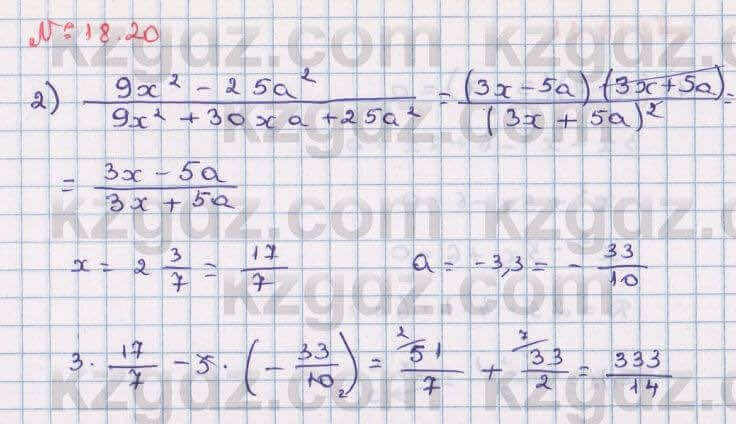 № 18.20
kzgdz.com kzgdz.com
2) (9x² - 25a²)/(9x² + 30xa + 25a²) = ((3x - 5a)(3x + 5a))/(3x + 5a)² =
kzgdz.com
= (3x - 5a)/(3x + 5a)
kzgdz.com kzgdz.com
x = 2 3/7 = 17/7 a = -3,3 = - 33/10
kzgdz.com
3 · 17/7 - 5 · (- 33/10 2) = 2/ 51/7 + 7/ 33/2 = 333/14
kzgdz.com kzgdz.com
kzgdz.com